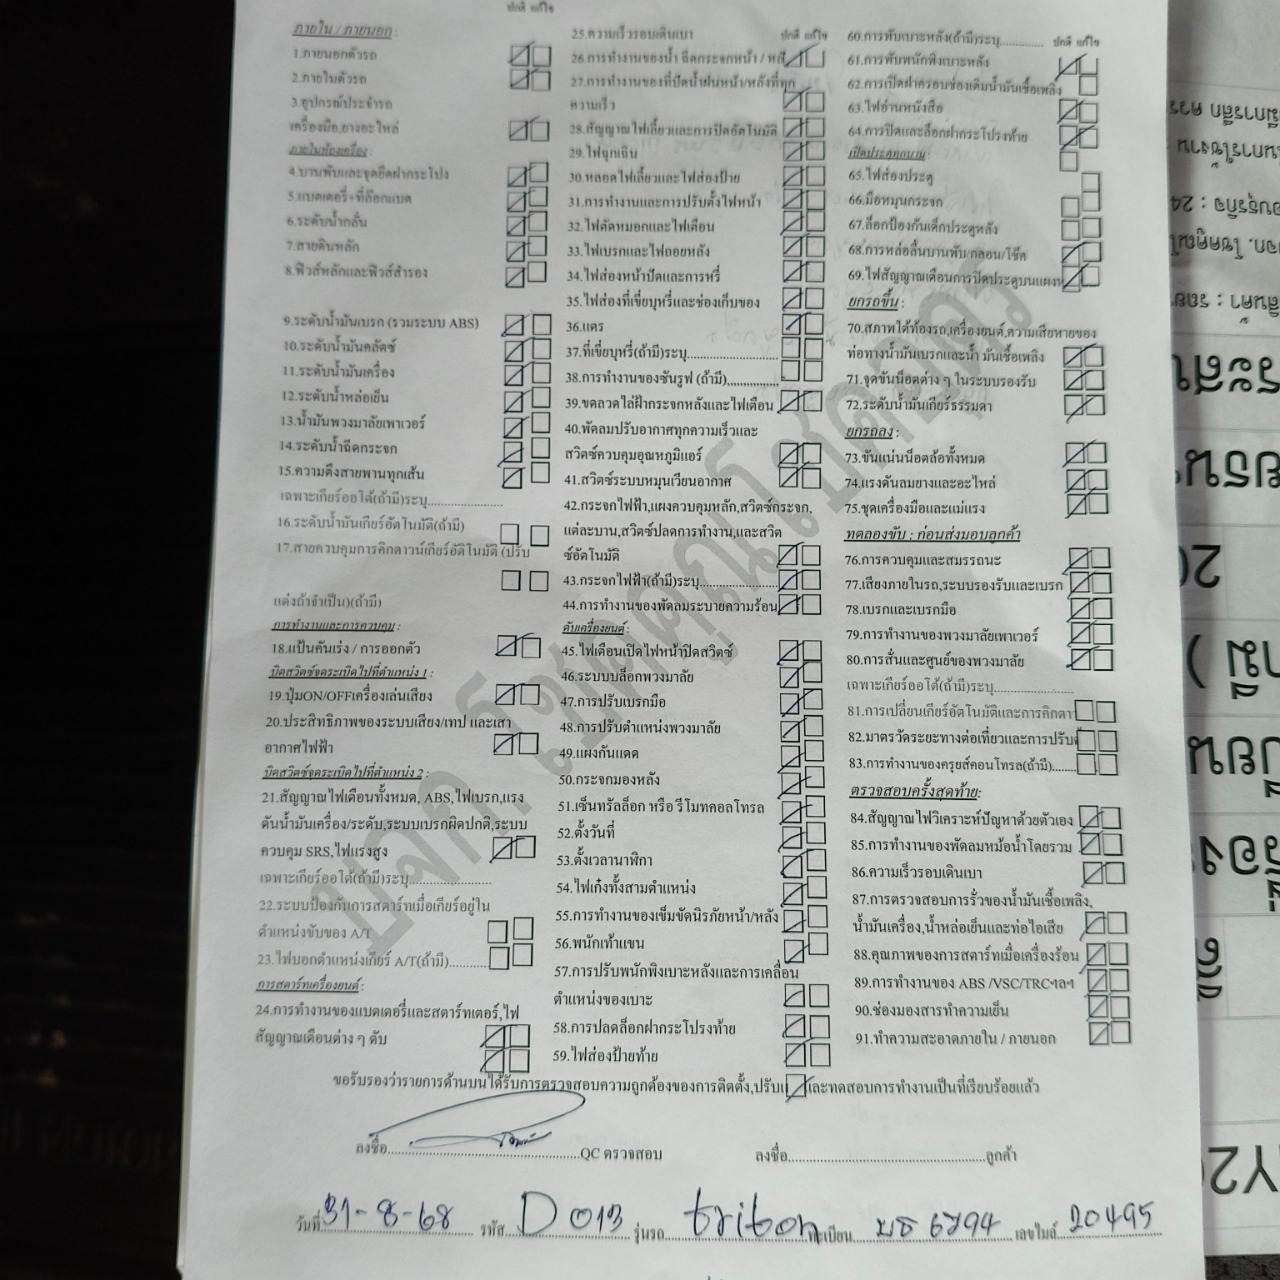 ปกติ แก้ไข
ภายใน / ภายนอก :
1.ภายนอกตัวรถ
2.ภายในตัวรถ
3.อุปกรณ์ประจำรถ
เครื่องมือ,ยางอะไหล่
ภายในห้องเครื่อง :
4.บานพับและจุดยึดฝากระโปง
5.แบตเตอรี่+ที่ล๊อกแบต
6.ระดับน้ำกลั่น
7.สายดินหลัก
8.ฟิวส์หลักและฟิวส์สำรอง
9.ระดับน้ำมันเบรก (รวมระบบ ABS)
10.ระดับน้ำมันคลัตซ์
11.ระดับน้ำมันเครื่อง
12.ระดับน้ำหล่อเย็น
13.น้ำมันพวงมาลัยเพาเวอร์
14.ระดับน้ำฉีดกระจก
15.ความตึงสายพานทุกเส้น
เฉพาะเกียร์ออโต้(ถ้ามี)ระบุ....................
16.ระดับน้ำมันเกียร์อัตโนมัติ(ถ้ามี)
17.สายควบคุมการคิกดาวน์เกียร์อัติโนมัติ (ปรับ
แต่งถ้าจำเป็น)(ถ้ามี)
การทำงานและการควบคุม :
18.แป้นคันเร่ง / การออกตัว
บิดสวิตซ์จุดระเบิดไปที่ตำแหน่ง 1 :
19.ปุ่มON/OFFเครื่องเล่นเสียง
20.ประสิทธิภาพของระบบเสียง/เทป และเสา
อากาศไฟฟ้า
บิดสวิตซ์จุดระเบิดไปที่ตำแหน่ง 2 :
21.สัญญาณไฟเตือนทั้งหมด, ABS,ไฟเบรก,แรง
ดันน้ำมันเครื่อง/ระดับ,ระบบเบรกผิดปกติ,ระบบ
ควบคุม SRS,ไฟแรงสูง
เฉพาะเกียร์ออโต้(ถ้ามี)ระบุ......................
22.ระบบป้องกันการสตาร์ทเมื่อเกียร์อยู่ใน
ตำแหน่งขับของ A/T
23.ไฟบอกตำแหน่งเกียร์ A/T(ถ้ามี)..........
การสตาร์ทเครื่องยนต์ :
24.การทำงานของแบตเตอรี่และสตาร์ทเตอร์,ไฟ
สัญญาณเตือนต่าง ๆ ดับ
25.ความเร็วรอบเดินเบา
ปกติ แก้ไข
26.การทำงานของน้ำ ฉีดกระจกหน้า / หลัง
27.การทำงานของที่ปัดน้ำฝนหน้า/หลังที่ทุก
ความเร็ว
28.สัญญาณไฟเลี้ยวและการปิดอัตโนมัติ
29.ไฟฉุกเฉิน
30.หลอดไฟเลี้ยวและไฟส่องป้าย
31.การทำงานและการปรับตั้งไฟหน้า
32.ไฟตัดหมอกและไฟเตือน
33.ไฟเบรกและไฟถอยหลัง
34.ไฟส่องหน้าปัดและการหรี่
35.ไฟส่องที่เขี่ยบุหรี่และช่องเก็บของ
36.แตร
37.ที่เขี่ยบุหรี่(ถ้ามี)ระบุ........................
38.การทำงานของซันรูฟ (ถ้ามี)..............
39.ขดลวดไล่ฝ้ากระจกหลังและไฟเตือน
40.พัดลมปรับอากาศทุกความเร็วและ
สวิตซ์ควบคุมอุณหภูมิแอร์
41.สวิตซ์ระบบหมุนเวียนอากาศ
42.กระจกไฟฟ้า,แผงควบคุมหลัก,สวิตซ์กระจก,
แต่ละบาน,สวิตซ์ปลดการทำงาน,และสวิต
ซ์อัตโนมัติ
43.กระจกไฟฟ้า(ถ้ามี)ระบุ.....................
44.การทำงานของพัดลมระบายความร้อน
ดับเครื่องยนต์ :
45.ไฟเตือนเปิดไฟหน้าปิดสวิตซ์
46.ระบบบล็อกพวงมาลัย
47.การปรับเบรกมือ
48.การปรับตำแหน่งพวงมาลัย
49.แผงกันแดด
50.กระจกมองหลัง
51.เซ็นทรัลล็อก หรือ รีโมทคอลโทรล
52.ตั้งวันที่
53.ตั้งเวลานาฬิกา
54.ไฟเก๋งทั้งสามตำแหน่ง
55.การทำงานของเข็มขัดนิรภัยหน้า/หลัง
56.พนักเท้าแขน
57.การปรับพนักพิงเบาะหลังและการเคลื่อน
ตำแหน่งของเบาะ
58.การปลดล็อกฝากระโปรงท้าย
59.ไฟส่องป้ายท้าย
60.การพับเบาะหลัง(ถ้ามี)ระบุ.............
ปกติ แก้ไข
61.การพับพนักพิงเบาะหลัง
62.การเปิดฝาครอบช่องเติมน้ำมันเชื้อเพลิง
63.ไฟอ่านหนังสือ
64.การปิดและล็อกฝากระโปรงท้าย
เปิดประตูทุกบาน :
65.ไฟส่องประตู
66.มือหมุนกระจก
67.ล็อกป้องกันเด็กประตูหลัง
68.การหล่อลื่นบานพับ/กลอน/โช๊ค
69.ไฟสัญญาณเตือนการปิดประตูบนแผงห
ยกรถขึ้น :
70.สภาพใต้ท้องรถ,เครื่องยนต์,ความเสียหายของ
ท่อทางน้ำมันเบรกและน้ำ มันเชื้อเพลิง
71.จุดขันน็อตต่าง ๆ ในระบบรองรับ
72.ระดับน้ำมันเกียร์ธรรมดา
ยกรถลง :
73.ขันแน่นน็อตล้อทั้งหมด
74.แรงดันลมยางและอะไหล่
75.ชุดเครื่องมือและแม่แรง
ทดลองขับ : ก่อนส่งมอบลูกค้า
76.การควบคุมและสมรรถนะ
77.เสียงภายในรถ,ระบบรองรับและเบรก
78.เบรกและเบรกมือ
79.การทำงานของพวงมาลัยเพาเวอร์
80.การสั่นและศูนย์ของพวงมาลัย
เฉพาะเกียร์ออโต้(ถ้ามี)ระบุ....................
81.การเปลี่ยนเกียร์อัตโนมัติและการคิกดา
82.มาตรวัดระยะทางต่อเที่ยวและการปรับตั้
83.การทำงานของครุยส์คอนโทรล(ถ้ามี).......
ตรวจสอบครั้งสุดท้าย:
84.สัญญาณไฟวิเคราะห์ปัญหาด้วยตัวเอง
85.การทำงานของพัดลมหม้อน้ำโดยรวม
86.ความเร็วรอบเดินเบา
87.การตรวจสอบการรั่วของน้ำมันเชื้อเพลิง,
น้ำมันเครื่อง,น้ำหล่อเย็นและท่อไอเสีย
88.คุณภาพของการสตาร์ทเมื่อเครื่องร้อน
89.การทำงานของ ABS /VSC/TRCฯลฯ
90.ช่องมองสารทำความเย็น
91.ทำความสะอาดภายใน / ภายนอก
ขอรับรองว่ารายการด้านบนได้รับการตรวจสอบความถูกต้องของการติดตั้ง,ปรับแ และทดสอบการทำงานเป็นที่เรียบร้อยแล้ว
ลงชื่อ..........QC ตรวจสอบ
ลงชื่อ..........ลูกค้า
วันที่ 31-8-68 รหัส D 013 รุ่นรถ triton ทะเบียน บธ 6794 เลขไมล์ 20495